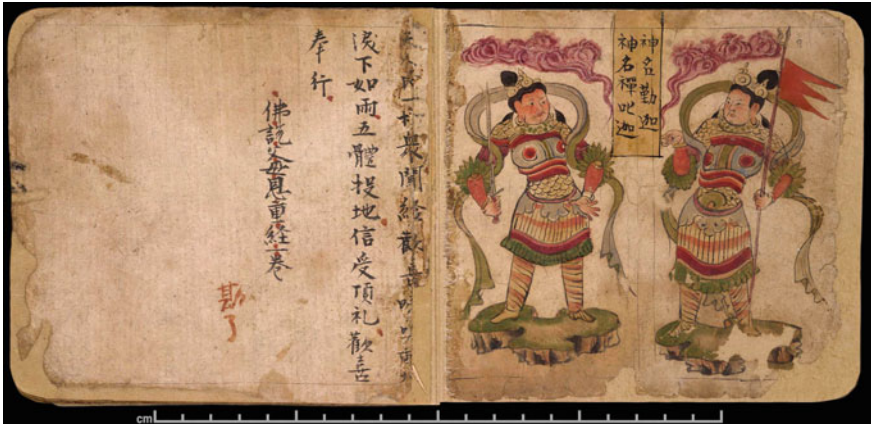 神名勤迦
神名禪叱迦
一切衆聞經歡喜
淚下如雨五體投地信受頂礼歡喜
奉行
佛說父母恩重經一卷
勘了
cm